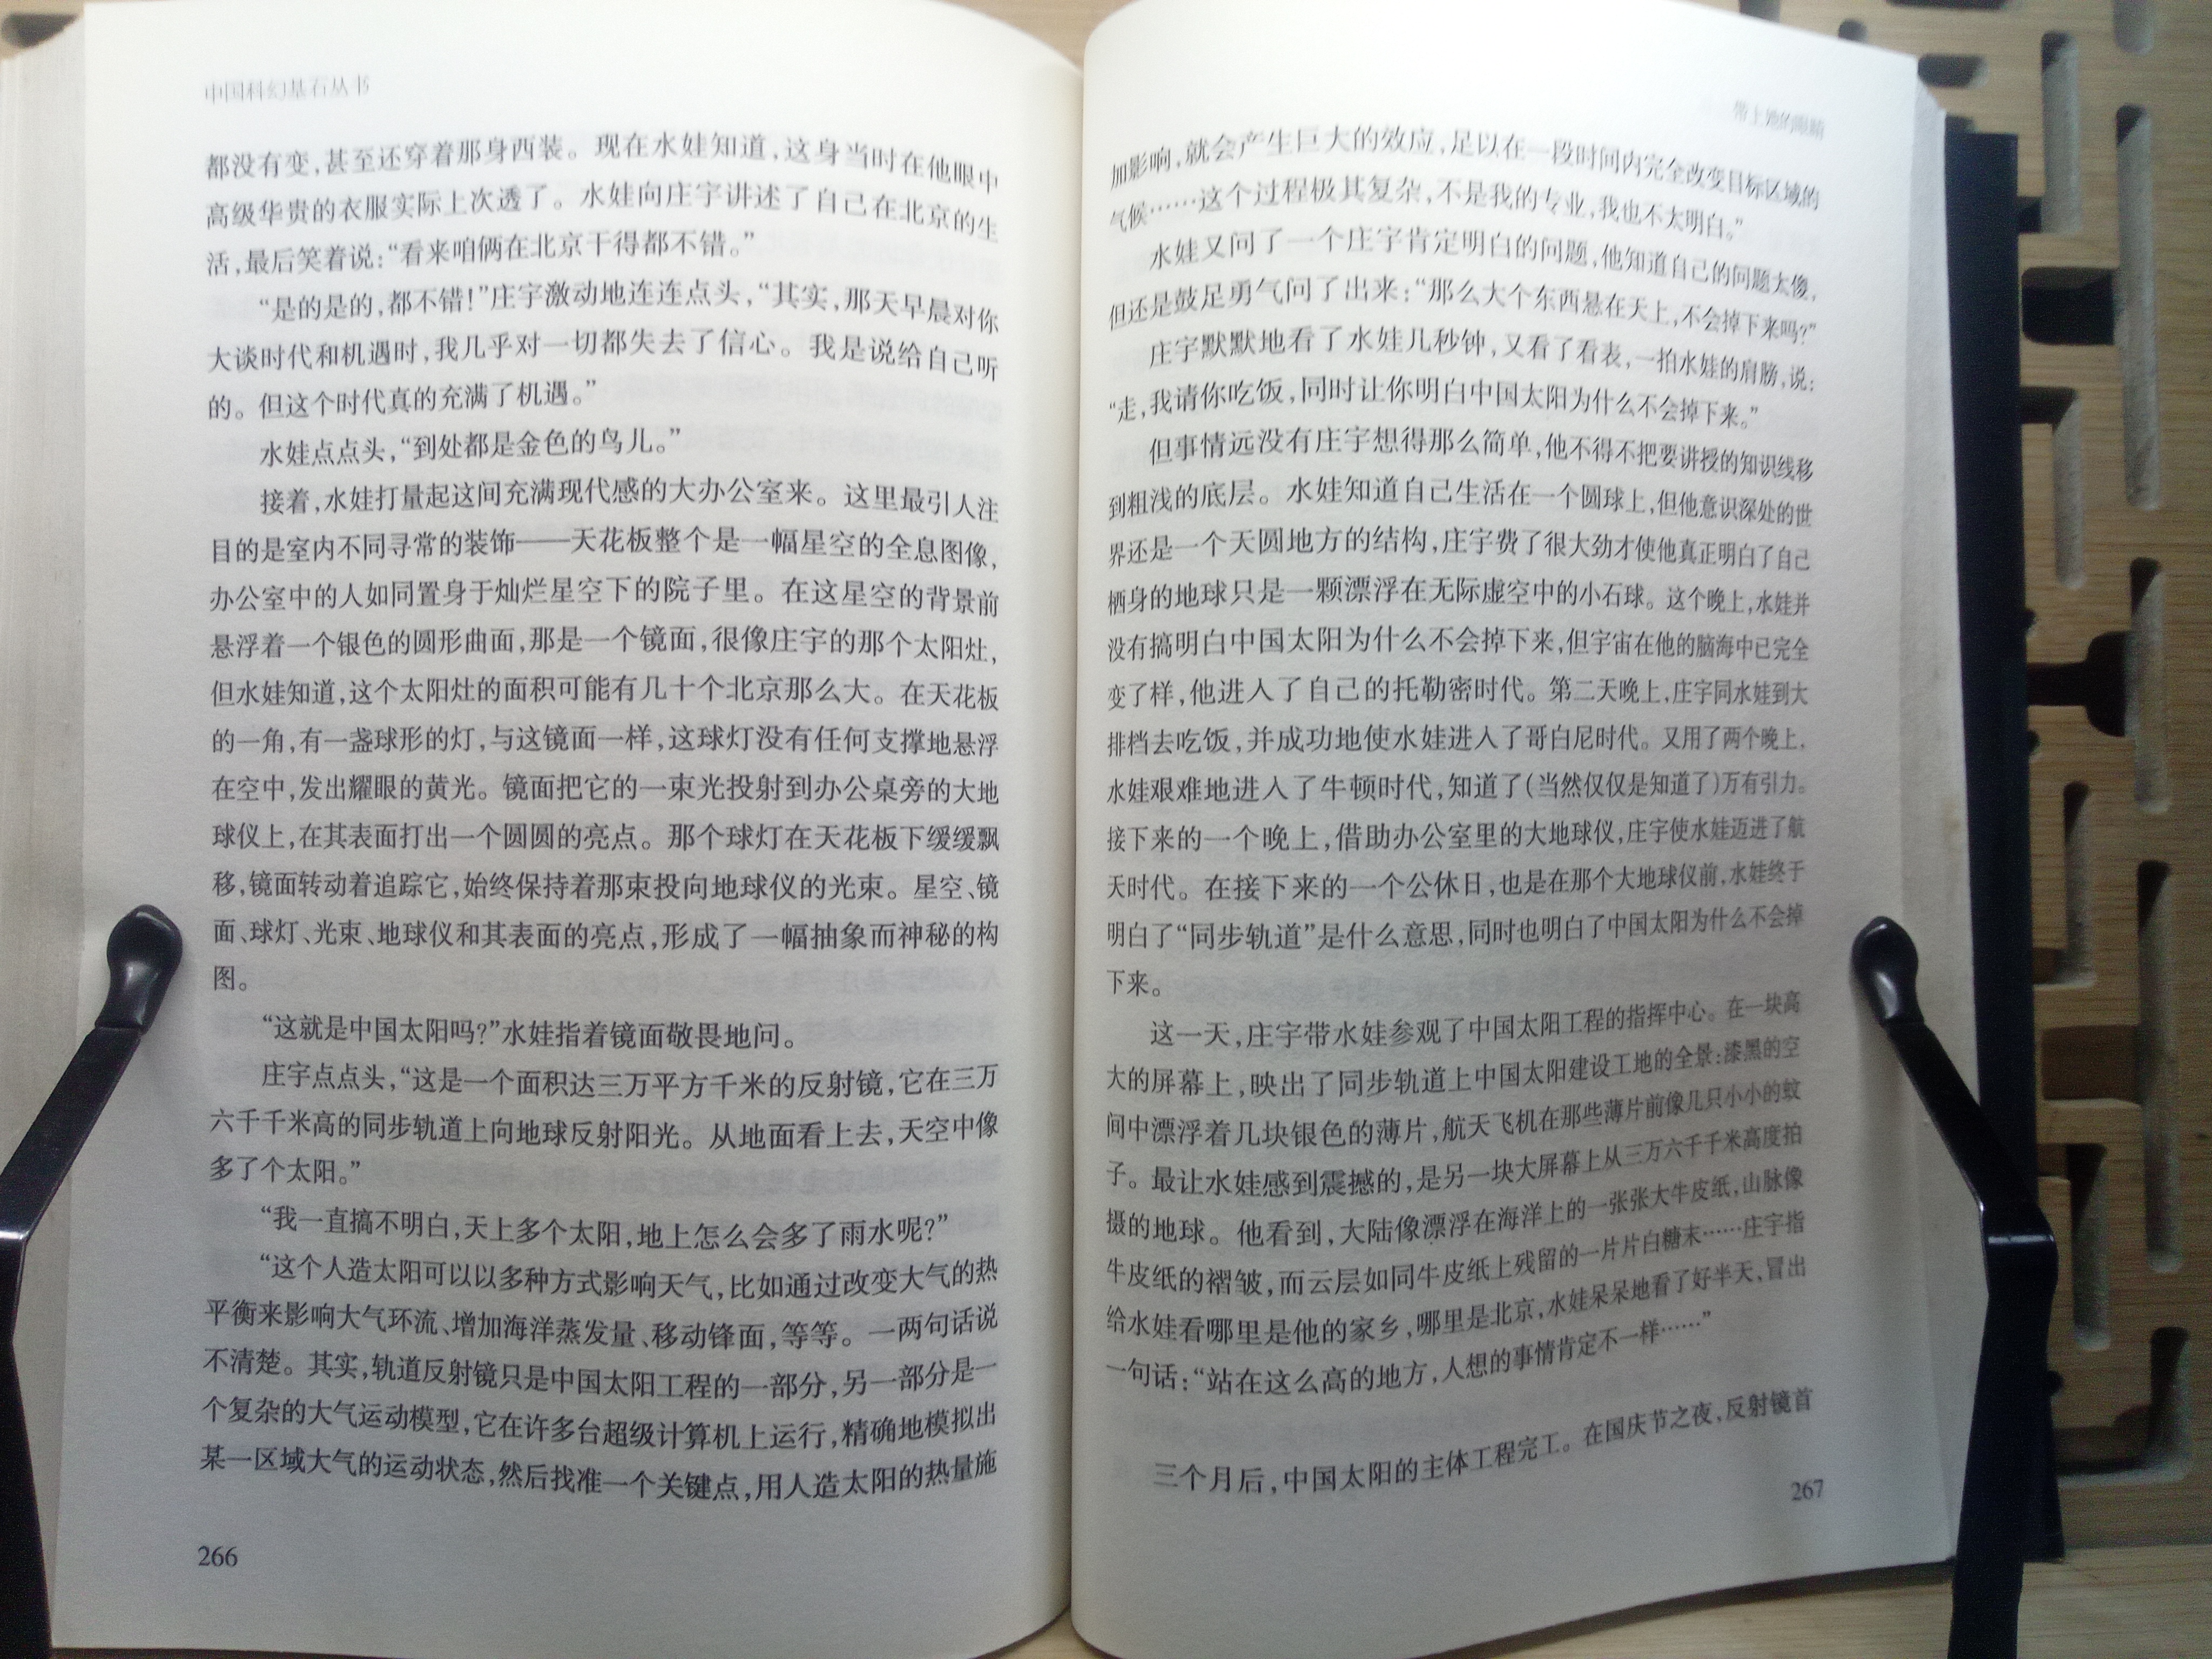 中国科幻基石丛书
都没有变，甚至还穿着那身西装。现在水娃知道，这身当时在他眼中
高级华贵的衣服实际上次透了。水娃向庄宇讲述了自己在北京的生
活，最后笑着说：“看来咱俩在北京干得都不错。”
“是的是的，都不错！”庄宇激动地连连点头，“其实，那天早晨对你
大谈时代和机遇时，我几乎对一切都失去了信心。我是说给自己听
的。但这个时代真的充满了机遇。”
水娃点点头，“到处都是金色的鸟儿。”
接着，水娃打量起这间充满现代感的大办公室来。这里最引人注
目的是室内不同寻常的装饰——天花板整个是一幅星空的全息图像，
办公室中的人如同置身于灿烂星空下的院子里。在这星空的背景前
悬浮着一个银色的圆形曲面，那是一个镜面，很像庄宇的那个太阳灶，
但水娃知道，这个太阳灶的面积可能有几十个北京那么大。在天花板
的一角，有一盏球形的灯，与这镜面一样，这球灯没有任何支撑地悬浮
在空中，发出耀眼的黄光。镜面把它的一束光投射到办公桌旁的大地
球仪上，在其表面打出一个圆圆的亮点。那个球灯在天花板下缓缓飘
移，镜面转动着追踪它，始终保持着那束投向地球仪的光束。星空、镜
面、球灯、光束、地球仪和其表面的亮点，形成了一幅抽象而神秘的构
图。
“这就是中国太阳吗？”水娃指着镜面敬畏地问。
庄宇点点头，“这是一个面积达三万平方千米的反射镜，它在三万
六千千米高的同步轨道上向地球反射阳光。从地面看上去，天空中像
多了个太阳。”
“我一直搞不明白，天上多个太阳，地上怎么会多了雨水呢？”
“这个人造太阳可以以多种方式影响天气，比如通过改变大气的热
平衡来影响大气环流、增加海洋蒸发量、移动锋面，等等。一两句话说
不清楚。其实，轨道反射镜只是中国太阳工程的一部分，另一部分是一
个复杂的大气运动模型，它在许多台超级计算机上运行，精确地模拟出
某一区域大气的运动状态，然后找准一个关键点，用人造太阳的热量施
266
带上她的眼睛
加影响，就会产生巨大的效应，足以在一段时间内完全改变目标区域的
气候……这个过程极其复杂，不是我的专业，我也不太明白。”
水娃又问了一个庄宇肯定明白的问题，他知道自己的问题太傻，
但还是鼓足勇气问了出来：“那么大个东西悬在天上，不会掉下来吗？”
庄宇默默地看了水娃几秒钟，又看了看表，一拍水娃的肩膀，说：
“走，我请你吃饭，同时让你明白中国太阳为什么不会掉下来。”
但事情远没有庄宇想得那么简单，他不得不把要讲授的知识线移
到粗浅的底层。水娃知道自己生活在一个圆球上，但他意识深处的世
界还是一个天圆地方的结构，庄宇费了很大劲才使他真正明白了自己
栖身的地球只是一颗漂浮在无际虚空中的小石球。这个晚上，水娃并
没有搞明白中国太阳为什么不会掉下来，但宇宙在他的脑海中已完全
变了样，他进入了自己的托勒密时代。第二天晚上，庄宇同水娃到大
排档去吃饭，并成功地使水娃进入了哥白尼时代。又用了两个晚上，
水娃艰难地进入了牛顿时代，知道了（当然仅仅是知道了）万有引力。
接下来的一个晚上，借助办公室里的大地球仪，庄宇使水娃迈进了航
天时代。在接下来的一个公休日，也是在那个大地球仪前，水娃终于
明白了“同步轨道”是什么意思，同时也明白了中国太阳为什么不会掉
下来。
这一天，庄宇带水娃参观了中国太阳工程的指挥中心。在一块高
大的屏幕上，映出了同步轨道上中国太阳建设工地的全景：漆黑的空
间中漂浮着几块银色的薄片，航天飞机在那些薄片前像几只小小的蚊
子。最让水娃感到震撼的，是另一块大屏幕上从三万六千千米高度拍
摄的地球。他看到，大陆像漂浮在海洋上的一张张大牛皮纸，山脉像
牛皮纸的褶皱，而云层如同牛皮纸上残留的一片片白糖末……庄宇指
给水娃看哪里是他的家乡，哪里是北京，水娃呆呆地看了好半天，冒出
一句话：“站在这么高的地方，人想的事情肯定不一样……”
三个月后，中国太阳的主体工程完工。在国庆节之夜，反射镜首
267